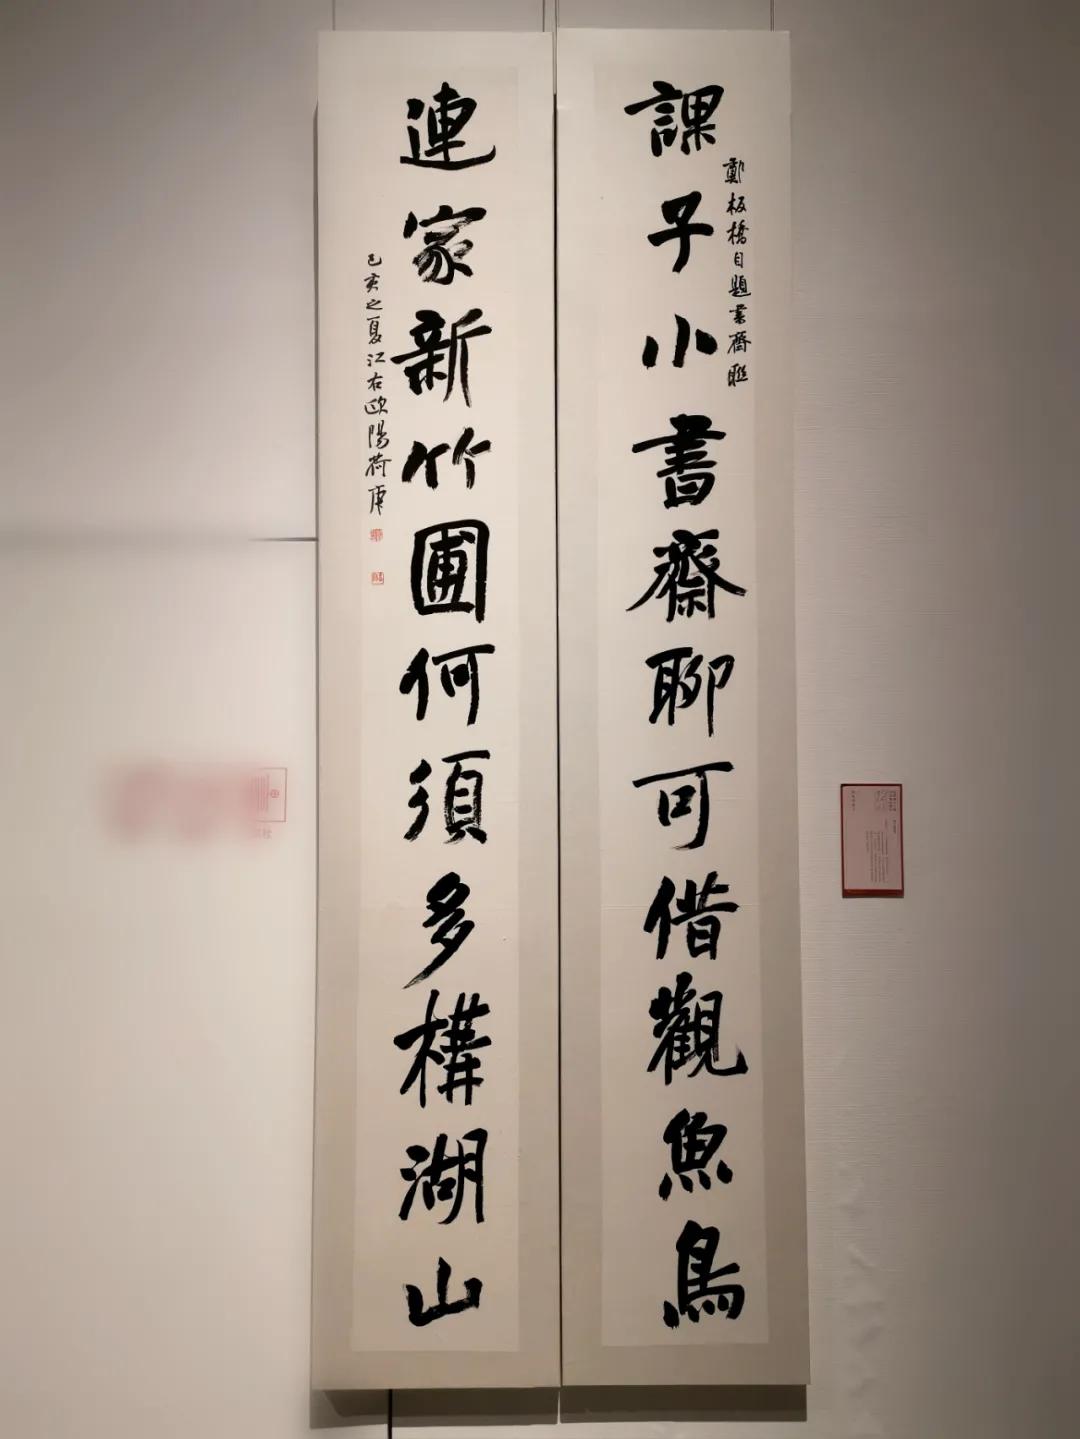 課子小書齋聊可借觀魚鳥
鄭板橋自題書齋聯
連家新竹圃何須多構湖山
己亥之夏江右歐陽荷庚